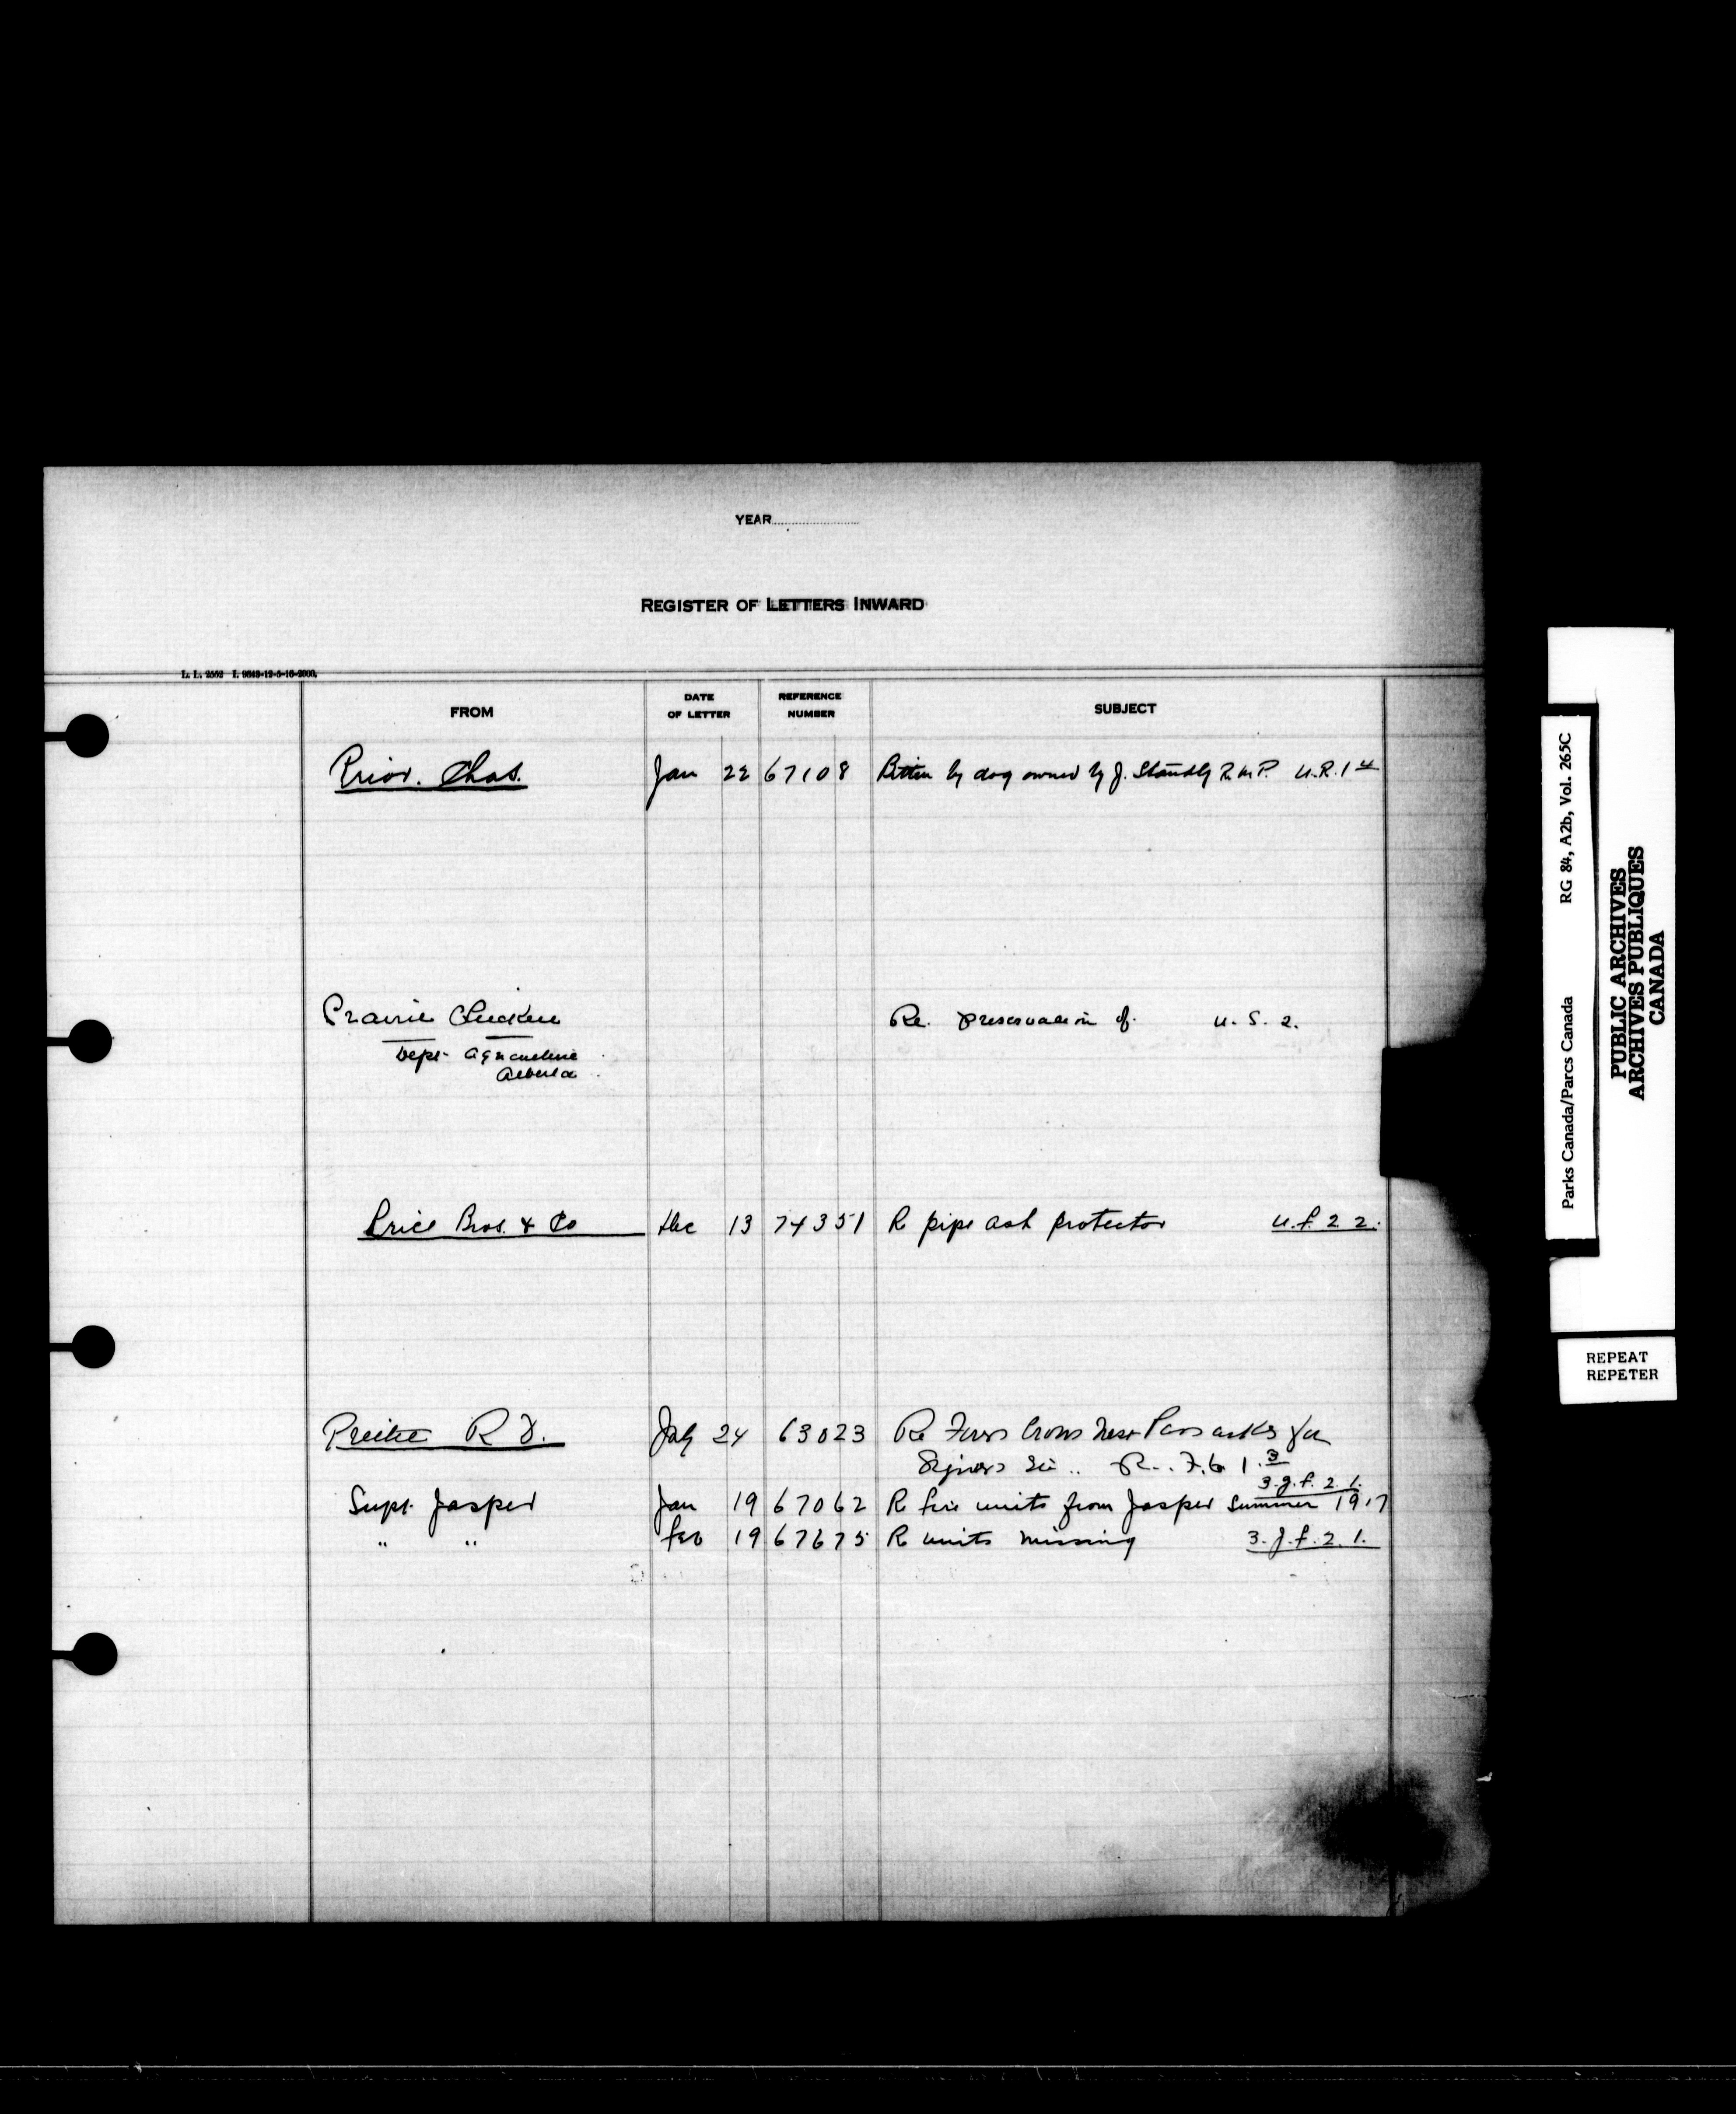 YEAR
REGISTER OF LETTERS INWARD
L. L. 2552 I. 9643-12-5-16-2000.
FROM DATE OF LETTER REFERENCE NUMBER SUBJECT
Prior. Chas. Jan 22 67108 Bitten by dog owned by J. Standly R.M.P. U.R.1
Prairie Chicken Re. preservation of. U.S.2.
Dept. Agriculture
Alberta
Price Bros. & Co Dec 13 74351 R pipe ash protector U.f.2 2.
R D. July 24 63023 Re Fires Crows Nest Pass asks for
R. F.6 1.3
3.J.f.2.1.
Supt. Jasper Jan 19 67062 R fire units from Jasper Summer 1917
" " Feb 19 67675 R units missing 3.J.f.2.1.
Parks Canada/Parcs Canada RG 84, A2b, Vol. 265C
PUBLIC ARCHIVES
ARCHIVES PUBLIQUES
CANADA
REPEAT
REPETER